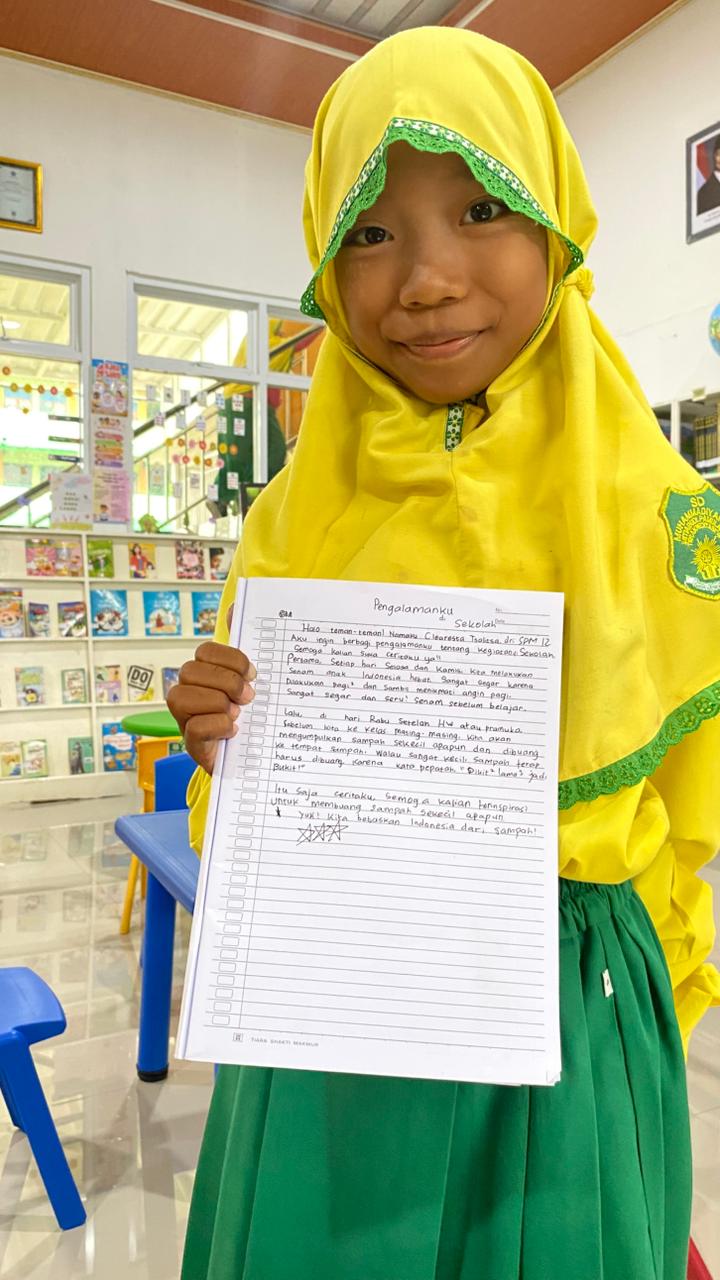 Pengalamanku
di Sekolah
No:
Date:
Halo teman-teman! Namaku Clearesta Tsabesa, dri SPM 12
Aku ingin berbagi pengalamanku tentang kegiatan Sekolah
Semoga kalian suka ceritaku ya!!
Pertama, Setiap hari Selasa dan Kamis, kita melakukan
Senam anak Indonesia hebat. Sangat segar karena
Dilakukan pagi² dan sambil menikmati angin pagi.
Sangat segar dan seru! Senam sebelum belajar.
Lalu, di hari Rabu setelah HW atau pramuka
Sebelum kita ke kelas masing-masing. Kita akan
mengumpulkan sampah sekecil apapun dan dibuang
ke tempat sampah. Walau sangat kecil, sampah tetap
harus dibuang karena kata pepatah "Dikit² lama² jadi
Bukit!"
Itu saja ceritaku, semoga kalian terinspirasi
Untuk membuang sampah sekecil apapun
Yuk! Kita bebaskan Indonesia dari sampah!
TIARA SHAKTI MAKMUR
SD
MUHAMMADIYAH
DO